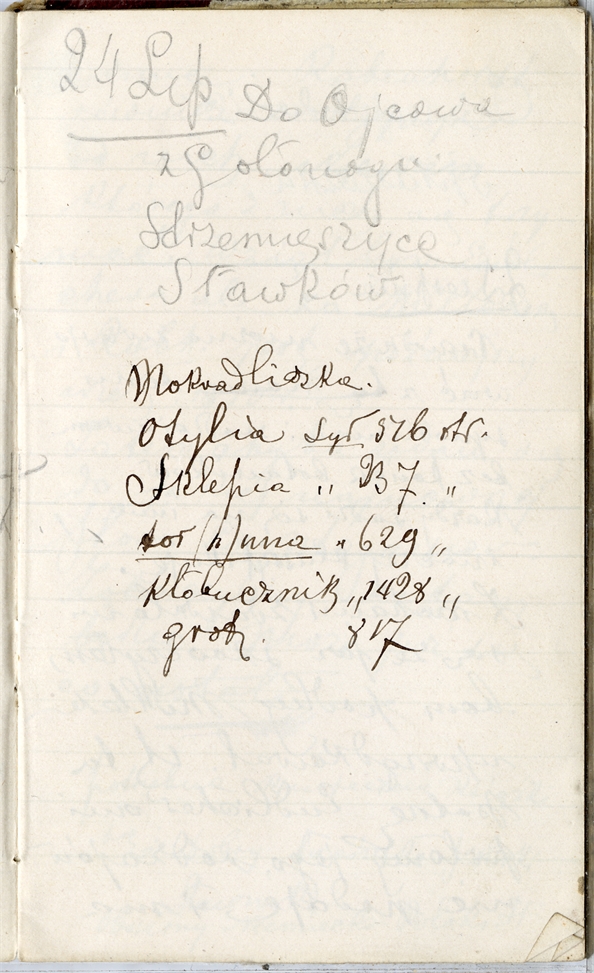 24 Lip Do Ojcowa
z Gołonogu
Strzemieszyce
Sławków
Mokradliszka.
Otylia Syr 526 str.
Sklepia " 137 "
tor(h)una " 629 "
Kłobucznik " 1428 "
grot. 817